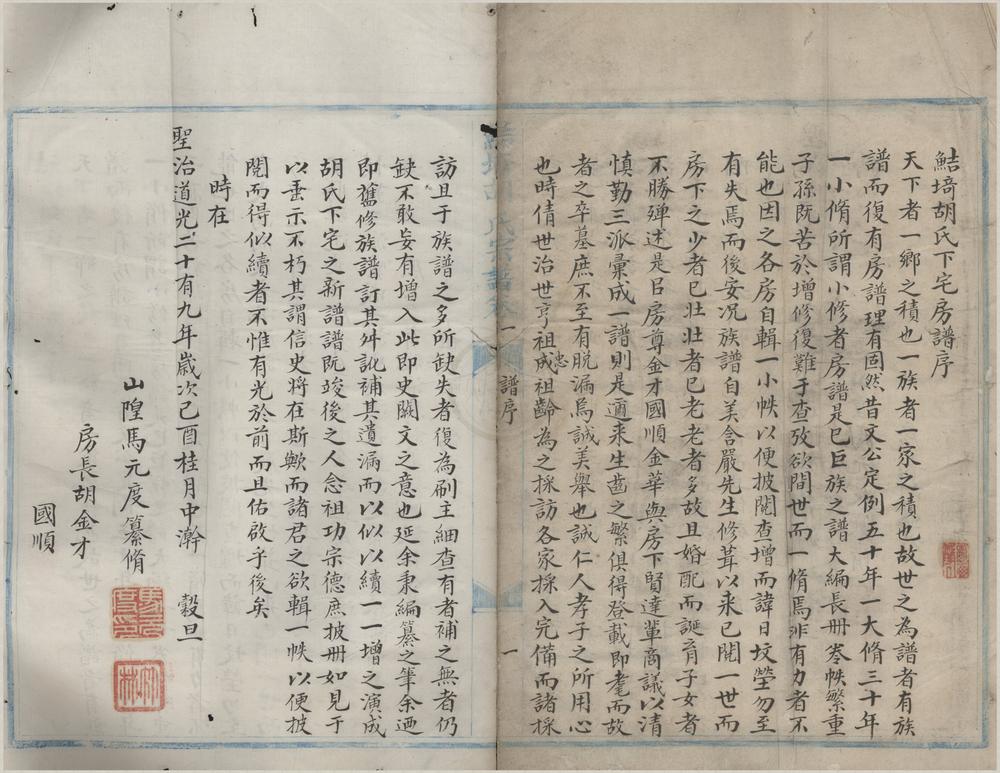 鮚埼胡氏下宅房譜序
天下者一鄉之積也一族者一家之積也故世之為譜者有族
譜而復有房譜理有固然昔文公定例五十年一大脩三十年
一小脩所謂小修者房譜是已巨族之譜大編長冊卷帙繁重
子孫既苦於增修復難于查攷欲間世而一脩焉非有力者不
能也因之各房自輯一小帙以便披閱查增而諱日坟塋勿至
有失焉而後安况族譜自美含嚴先生修葺以来已閱一世而
房下之少者已壯壯者已老老者多故且婚配而誕育子女者
不勝殫述是㠯房尊金才國順金華與房下賢達輩商議以清
慎勤三派彙成一譜則是邇来生齒之繁俱得登載即耄而故
者之卒墓庶不至有脱漏焉誠美舉也誠仁人孝子之所用心
也時倩世治世亨祖成忠祖齡為之採訪各家採入完備而諸採
譜序
一
訪且于族譜之多所缺失者復為刷王細查有者補之無者仍
缺不敢妄有增入此即史闕文之意也延余秉編纂之筆余迺
即舊修族譜訂其舛訛補其遺漏而以似以續一一增之演成
胡氏下宅之新譜譜既竣後之人念祖功宗德庶披冊如見于
以垂示不朽其謂信史將在斯歟而諸君之欲輯一帙以便披
閱而得似續者不惟有光於前而且佑啟乎後矣
時在
聖治道光二十有九年歲次己酉桂月中澣 穀旦
山隍馬元度纂脩
房長胡金才
國順